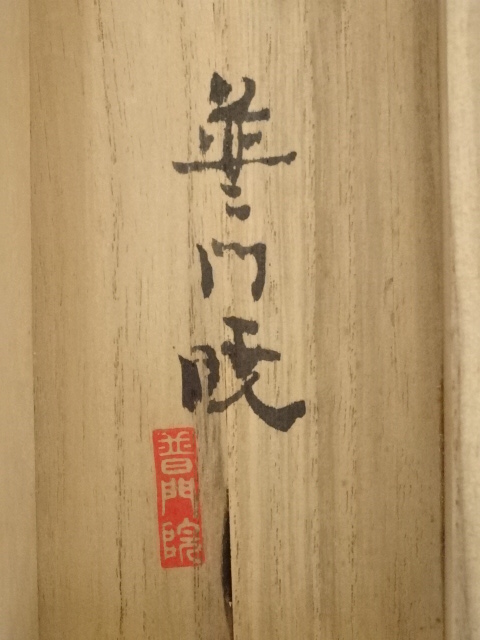 普門院
普門院